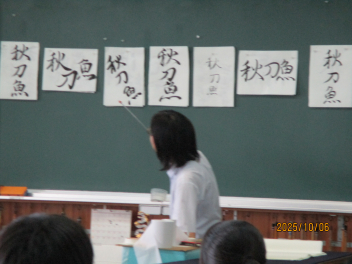 秋刀魚
秋刀魚
秋刀魚
秋刀魚
秋刀魚
秋刀魚
秋刀魚
2025/10/06